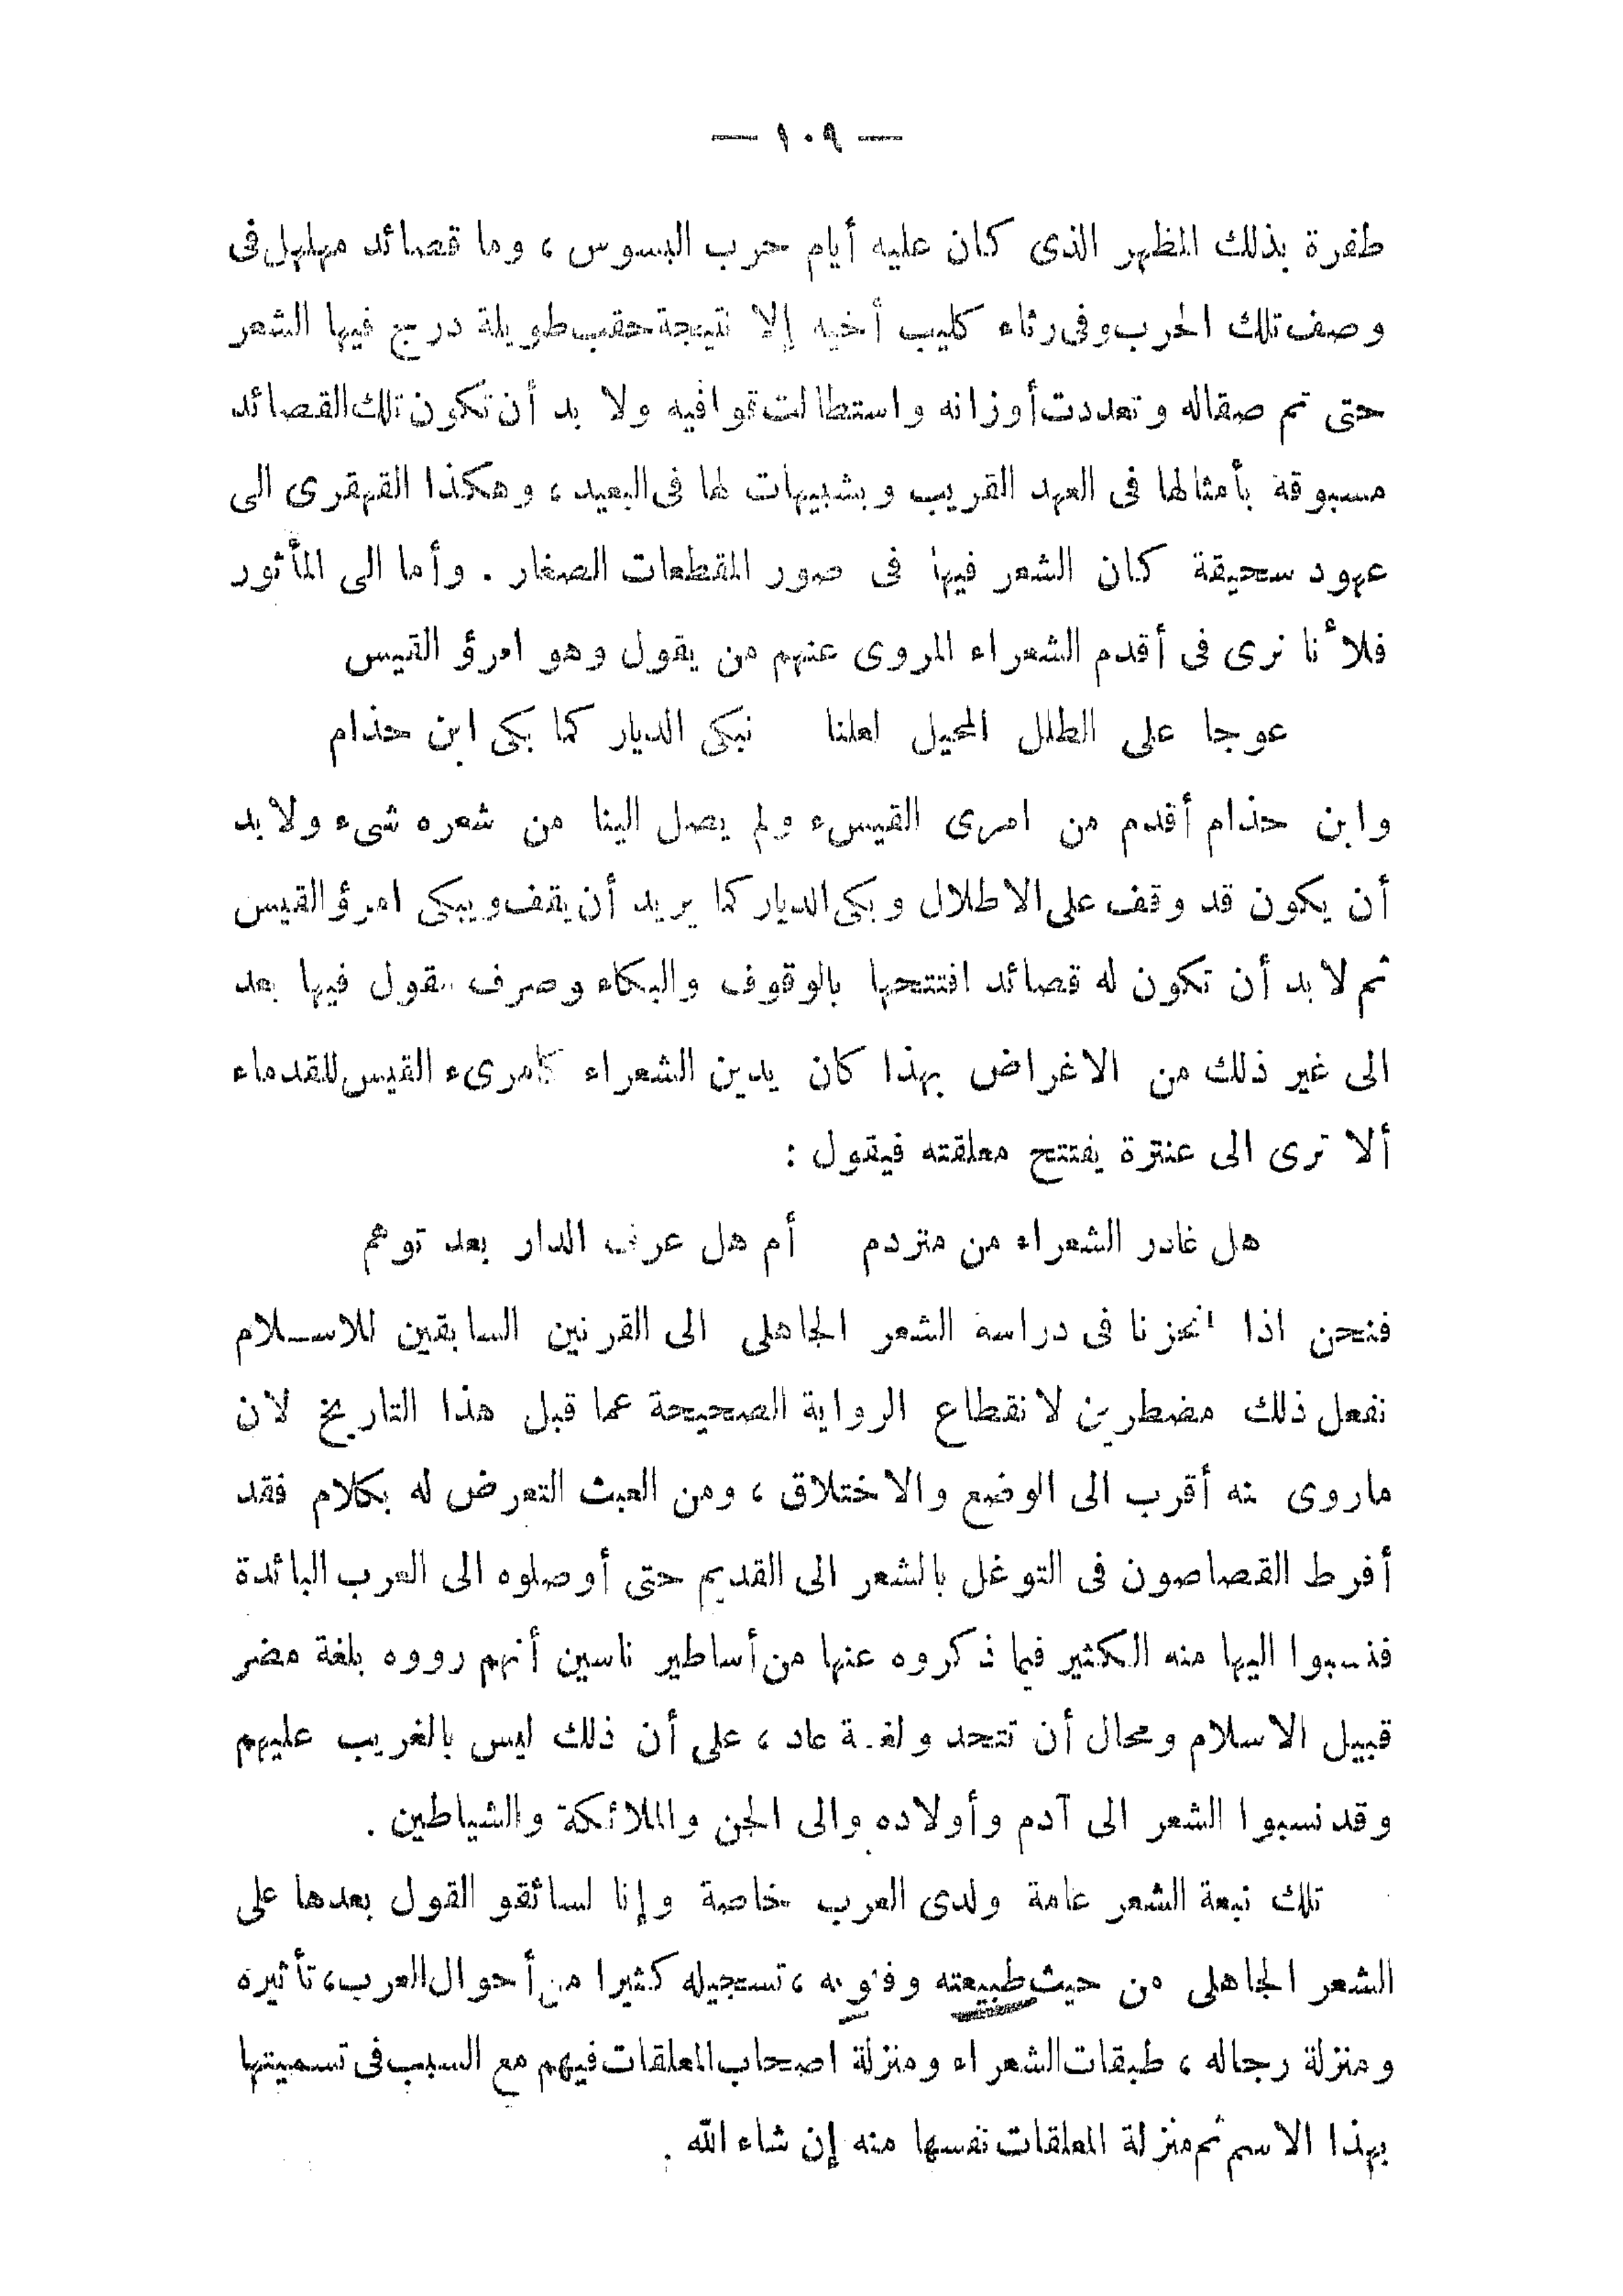 — ١٠٩ —
طفرة بذلك المظهر الذى كان عليه أيام حرب البسوس ، وما قصائد مهلهل فى
وصف تلك الحرب وفى رثاء كليب أخيه إلا نتيجة حقب طويلة درج فيها الشعر
حتى تم صقاله وتعددت أوزانه واستطالت قوافيه ولا بد أن تكون تلك القصائد
مسبوقة بأمثالها فى العهد القريب وبشبيهات لها فى البعيد ، وهكذا القهقرى الى
عهود سحيقة كان الشعر فيها فى صور المقطعات الصغار . وأما الى المأثور
فلأنا نرى فى أقدم الشعراء المروى عنهم من يقول وهو امرؤ القيس
عوجا على الطلل المحيل لعلنا نبكى الديار كما بكى ابن حذام
وابن حذام أقدم من امرى القيسء ولم يصل الينا من شعره شىء ولا بد
أن يكون قد وقف على الاطلال وبكى الديار كما يريد أن يقف ويبكى امرؤ القيس
ثم لا بد أن تكون له قصائد افتتحها بالوقوف والبكاء وصرف القول فيها بعد
الى غير ذلك من الاغراض بهذا كان يدين الشعراء كامرىء القيس للقدماء
ألا ترى الى عنترة يفتتح معلقته فيقول :
هل غادر الشعراء من متردم أم هل عرفت الدار بعد توهم
فنحن اذا انحزنا فى دراسة الشعر الجاهلى الى القرنين السابقين للاسلام
نفعل ذلك مضطرين لانقطاع الرواية الصحيحة عما قبل هذا التاريخ لان
ماروى منه أقرب الى الوضع والاختلاق ، ومن العبث التعرض له بكلام فقد
أفرط القصاصون فى التوغل بالشعر الى القديم حتى أوصلوه الى العرب البائدة
فنسبوا اليها منه الكثير فيما ذكروه عنها من أساطير ناسين أنهم رووه بلغة مضر
قبيل الاسلام ومحال أن تتحد ولغة عاد ، على أن ذلك ليس بالغريب عليهم
وقد نسبوا الشعر الى آدم وأولاده والى الجن والملائكة والشياطين .
تلك نبعة الشعر عامة ولدى العرب خاصة وإنا لسائقو القول بعدها على
الشعر الجاهلى من حيث طبيعته وفنونه ، تسجيله كثيرا من أحوال العرب ، تأثيره
ومنزلة رجاله ، طبقات الشعراء ومنزلة اصحاب المعلقات فيهم مع السبب فى تسميتها
بهذا الاسم ثم منزلة المعلقات نفسها منه إن شاء الله .